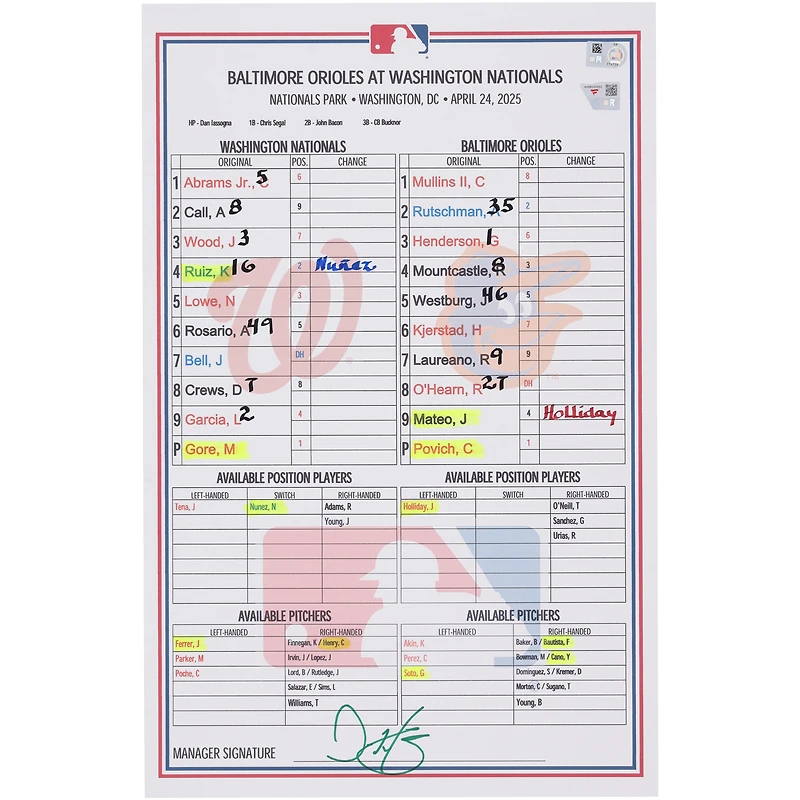 BALTIMORE ORIOLES AT WASHINGTON NATIONALS
NATIONALS PARK • WASHINGTON, DC • APRIL 24, 2025
HP - Dan Iassogna 1B - Chris Segal 2B - John Bacon 3B - CB Bucknor
WASHINGTON NATIONALS BALTIMORE ORIOLES
ORIGINAL POS. CHANGE ORIGINAL POS. CHANGE
1 Abrams Jr., C 5 6 1 Mullins II, C 8
2 Call, A 8 9 2 Rutschman, A 35 2
3 Wood, J 3 7 3 Henderson, G 1 6
4 Ruiz, K 16 2 Nuñez 4 Mountcastle, R 8 3
5 Lowe, N 3 5 Westburg, J 46 5
6 Rosario, A 49 5 6 Kjerstad, H 7
7 Bell, J DH 7 Laureano, R 9 9
8 Crews, D 7 8 8 O'Hearn, R 27 DH
9 Garcia, L 2 4 9 Mateo, J 4 Holliday
P Gore, M 1 P Povich, C 1
AVAILABLE POSITION PLAYERS AVAILABLE POSITION PLAYERS
LEFT-HANDED SWITCH RIGHT-HANDED LEFT-HANDED SWITCH RIGHT-HANDED
Tena, J Nunez, N Adams, R Holliday, J O'Neill, T
Young, J Sanchez, G
Urias, R
AVAILABLE PITCHERS AVAILABLE PITCHERS
LEFT-HANDED RIGHT-HANDED LEFT-HANDED RIGHT-HANDED
Ferrer, J Finnegan, K / Henry, C Akin, K Baker, B / Bautista, F
Parker, M Irvin, J / Lopez, J Perez, C Bowman, M / Cano, Y
Poche, C Lord, B / Rutledge, J Soto, G Dominguez, S / Kremer, D
Salazar, E / Sims, L Morton, C / Sugano, T
Williams, T Young, B
MANAGER SIGNATURE